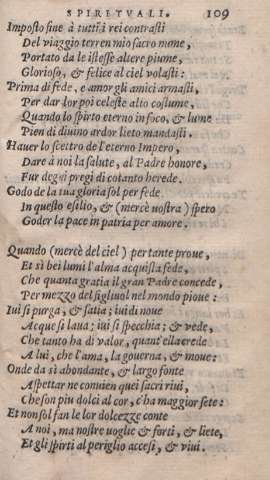 SPIRETVALI. 109
Imposto fine à tutti i rei contrasti
Del viaggio terren mio sacro mone,
Portato da le istesse altere piume,
Glorioso, & felice al ciel volasti:
Prima di fede, e amor gli amici armasti,
Per dar lor poi celeste alto costume,
Quando lo spirto eterno in foco, & lume
Pien di diuino ardor lieto mandasti.
Hauer lo scettro de l'eterno Impero,
Dare à noi la salute, al Padre honore,
Fur degni pregi di cotanto herede.
Godo de la tua gloria sol per fede
In questo esilio, & (mercè vostra) spero
Goder la pace in patria per amore.
Quando (mercè del ciel) per tante proue,
Et sì bei lumi l'alma acquista fede,
Che quanta gratia il gran Padre concede,
Per mezzo del figliuol nel mondo pioue:
Iui si purga, & satia; iui di noue
Acque si laua; iui si specchia; & vede,
Che tanto ha di valor, quant'ella crede
A lui, che l'ama, la gouerna, & moue:
Onde da sì abondante, & largo fonte
Aspettar ne conuien quei sacri riui,
Che son piu dolci al cor, c'ha maggior sete:
Et non sol fan le lor dolcezze conte
A noi, ma nostre voglie & forti, & liete,
Et gli spirti al periglio accesi, & viui.